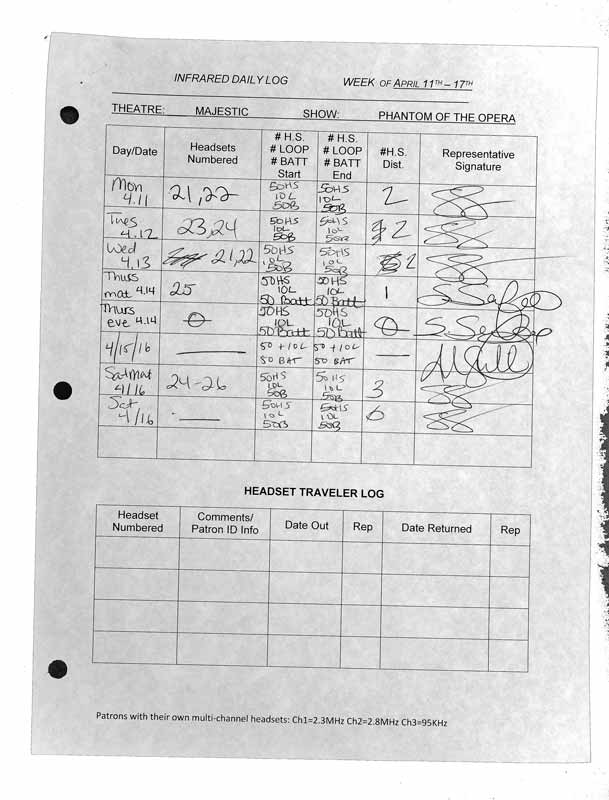 INFRARED DAILY LOG WEEK OF APRIL 11TH – 17TH
THEATRE: MAJESTIC SHOW: PHANTOM OF THE OPERA
Day/Date Headsets Numbered # H.S. # LOOP # BATT Start # H.S. # LOOP # BATT End #H.S. Dist. Representative Signature
Mon 4.11 21,22 50HS 10L 50B 50HS 10L 50B 2
Tues 4.12 23,24 50HS 10L 50B 50HS 10L 50B 2
Wed 4.13 21,22 50HS 10L 50B 50HS 10L 50B 2
Thurs mat 4.14 25 50HS 10L 50 Batt 50HS 10L 50 Batt 1
Thurs eve 4.14 0 50HS 10L 50 Batt 50HS 10L 50 Batt 0
4/15/16 — 50 + 10L 50 BAT 50 + 10L 50 BAT —
Sat Mat 4/16 24-26 50HS 10L 50B 50HS 10L 50B 3
Sat 4/16 — 50HS 10L 50B 50HS 10L 50B
HEADSET TRAVELER LOG
Headset Numbered Comments/ Patron ID Info Date Out Rep Date Returned Rep
Patrons with their own multi-channel headsets: Ch1=2.3MHz Ch2=2.8MHz Ch3=95KHz